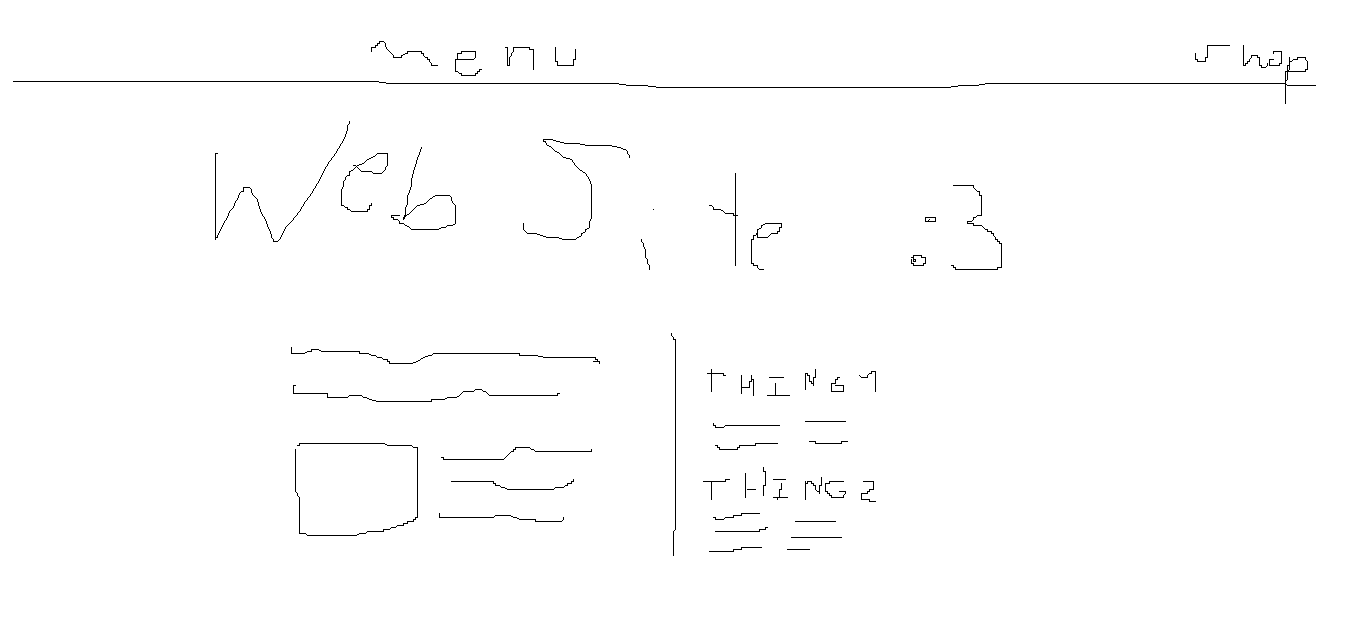 menu shop
Web Site :3
THING 1
THING 2